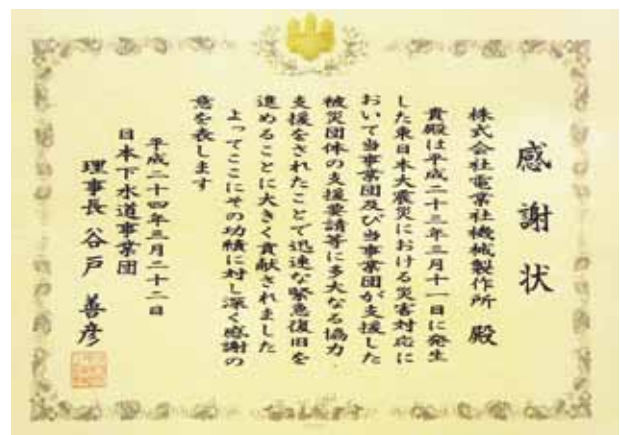 感謝状
株式会社電業社機械製作所 殿
貴殿は平成二十三年三月十一日に発生
した東日本大震災における災害対応に
おいて当事業団及び当事業団が支援した
被災団体の支援要請等に多大なる協力・
支援をされたことで迅速な緊急復旧を
進めることに大きく貢献されました
よってここにその功績に対し深く感謝の
意を表します
平成二十四年三月二十二日
日本下水道事業団
理事長 谷戸 善彦